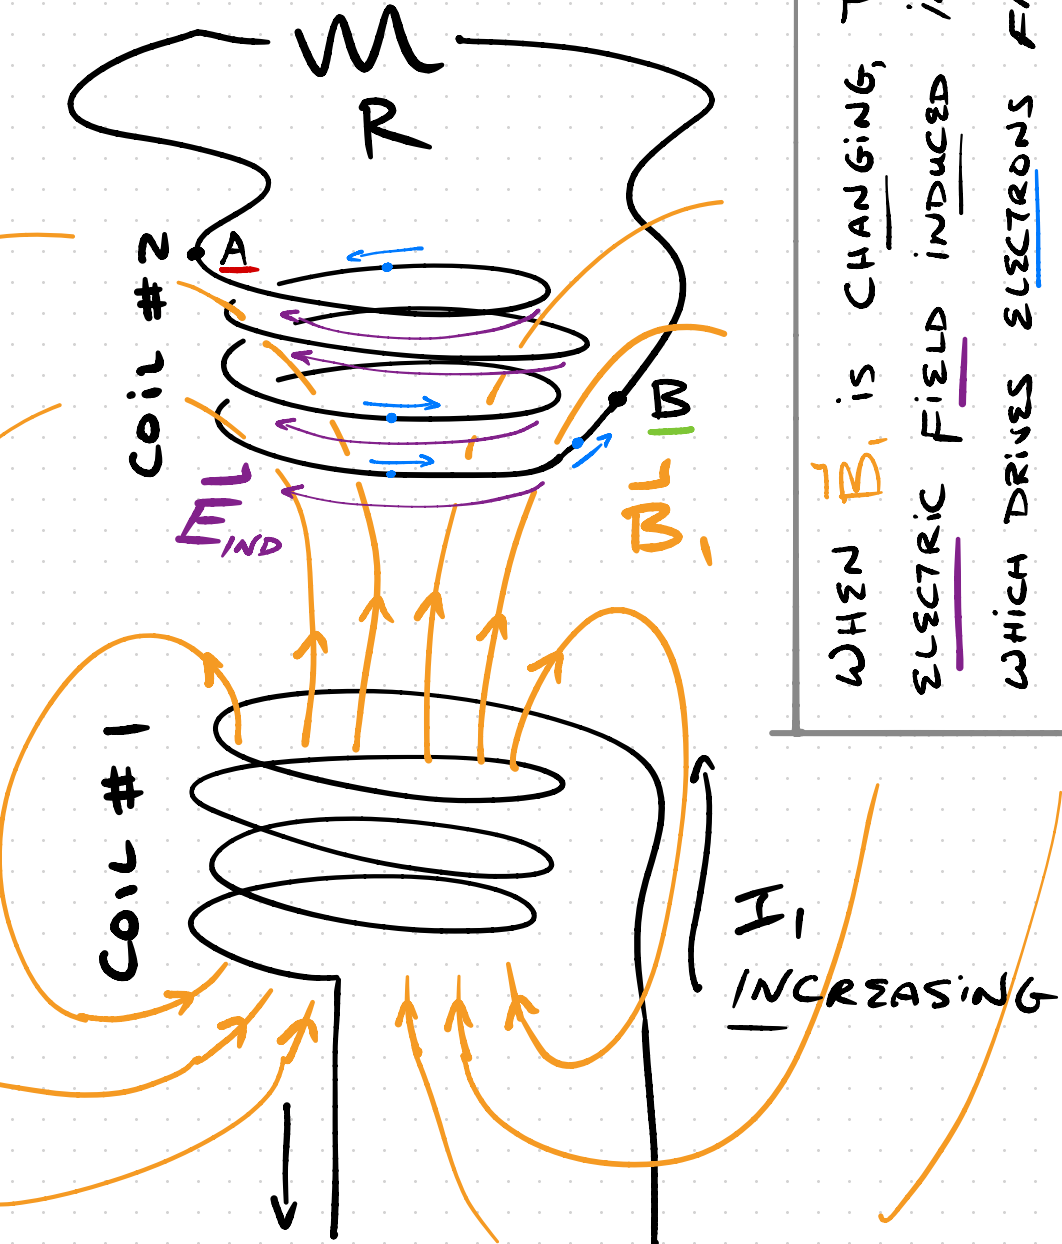 R
COIL # 2
A
B
E IND
B 1
COIL # 1
I 1
INCREASING
WHEN B 1 IS CHANGING,
ELECTRIC FIELD INDUCED
WHICH DRIVES ELECTRONS